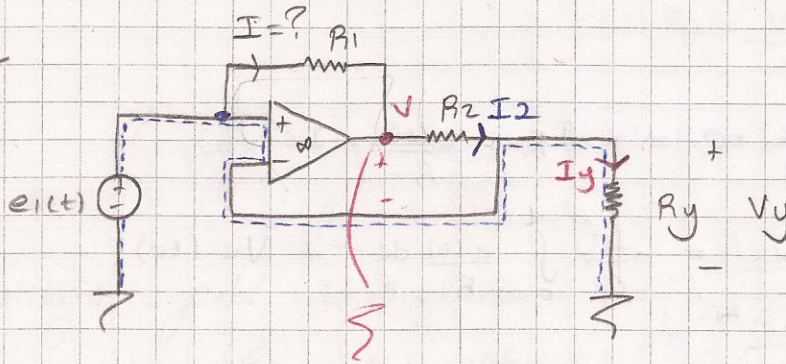 I=?
R1
+
∞
−
V
R2
I2
+
−
e1(t)
+
−
Iy
Ry
+
Vy
−